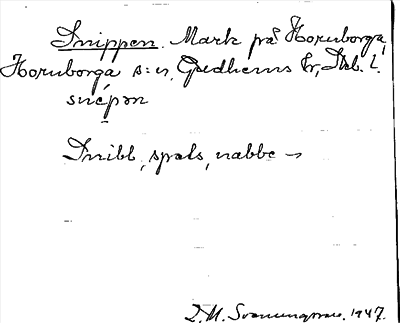 Snippen. Mark på Hornborga,
Hornborga s:n, Gudhems hr, Skb. l.
snépən
Snibb, spets, nabbe –
D. M. 1947.